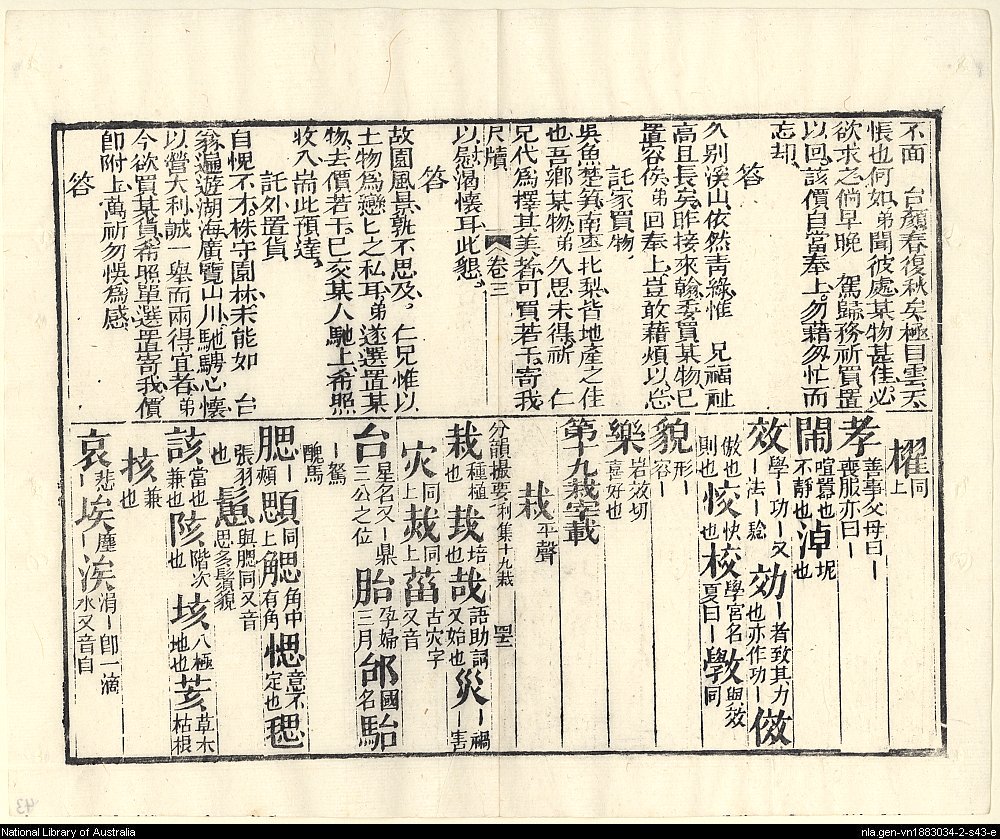 不面 台顏春復秋矣極目雲天
悵也何如弟聞彼處某物甚佳必
欲求之倘早晚 駕歸務祈買置
以回該價自當奉上勿藉匆忙而
忘却
答
久别溪山依然青綠惟 兄福祉
高且長矣昨接來翰委買某物已
置容俟弟回奉上豈敢藉煩以忘
託家買物
吳魚楚箕南棗北梨皆地產之佳
也吾鄉某物弟久思未得祈 仁
兄代為擇其美者可買若干寄我
尺牘 卷三
以慰渴懷耳此懇
答
故園風景孰不思及 仁兄惟以
土物為戀戀之私耳弟遂選置某
物去價若干已交某人馳上希照
收入耑此預達
託外置貨
自愧不才株守園林未能如 台
翁遍遊湖海廣覽山川馳騁心懷
以營大利誠一舉而兩得宜者弟
今欲買某貨希照單選置寄我價
即附上萬祈勿悞為感
答
櫂同上
孝善事父母曰丨喪服亦曰丨
鬧喧囂也不靜也 淖坭也
效學丨功丨又丨法丨騐 効丨者致其力也亦作功丨 傚
傚也則也 恔快也 校學宮名夏曰丨 教與效同
貌形丨容丨
樂岩效切喜好也
第十九栽宰載
栽平聲
分韻撮要利集十九栽 四三
栽種植也 㘽培也 哉語助詞又始也 災丨禍丨害
灾同上 烖同上 葘古灾字又音
台星名又丨鼎三公之位 胎孕婦三月 邰國名 駘
丨駑醜馬
腮丨頰 顋同上 䚡角中有角 愢意不定也 毸
張羽也 䰄與腮同又音思多鬚貌
該當也兼也 陔階次也 垓八極地也 荄草木枯根
㧡兼也
哀悲丨 埃丨塵 涘涓丨即一滴水又音自
National Library of Australia
nla.gen-vn1883034-2-s43-e